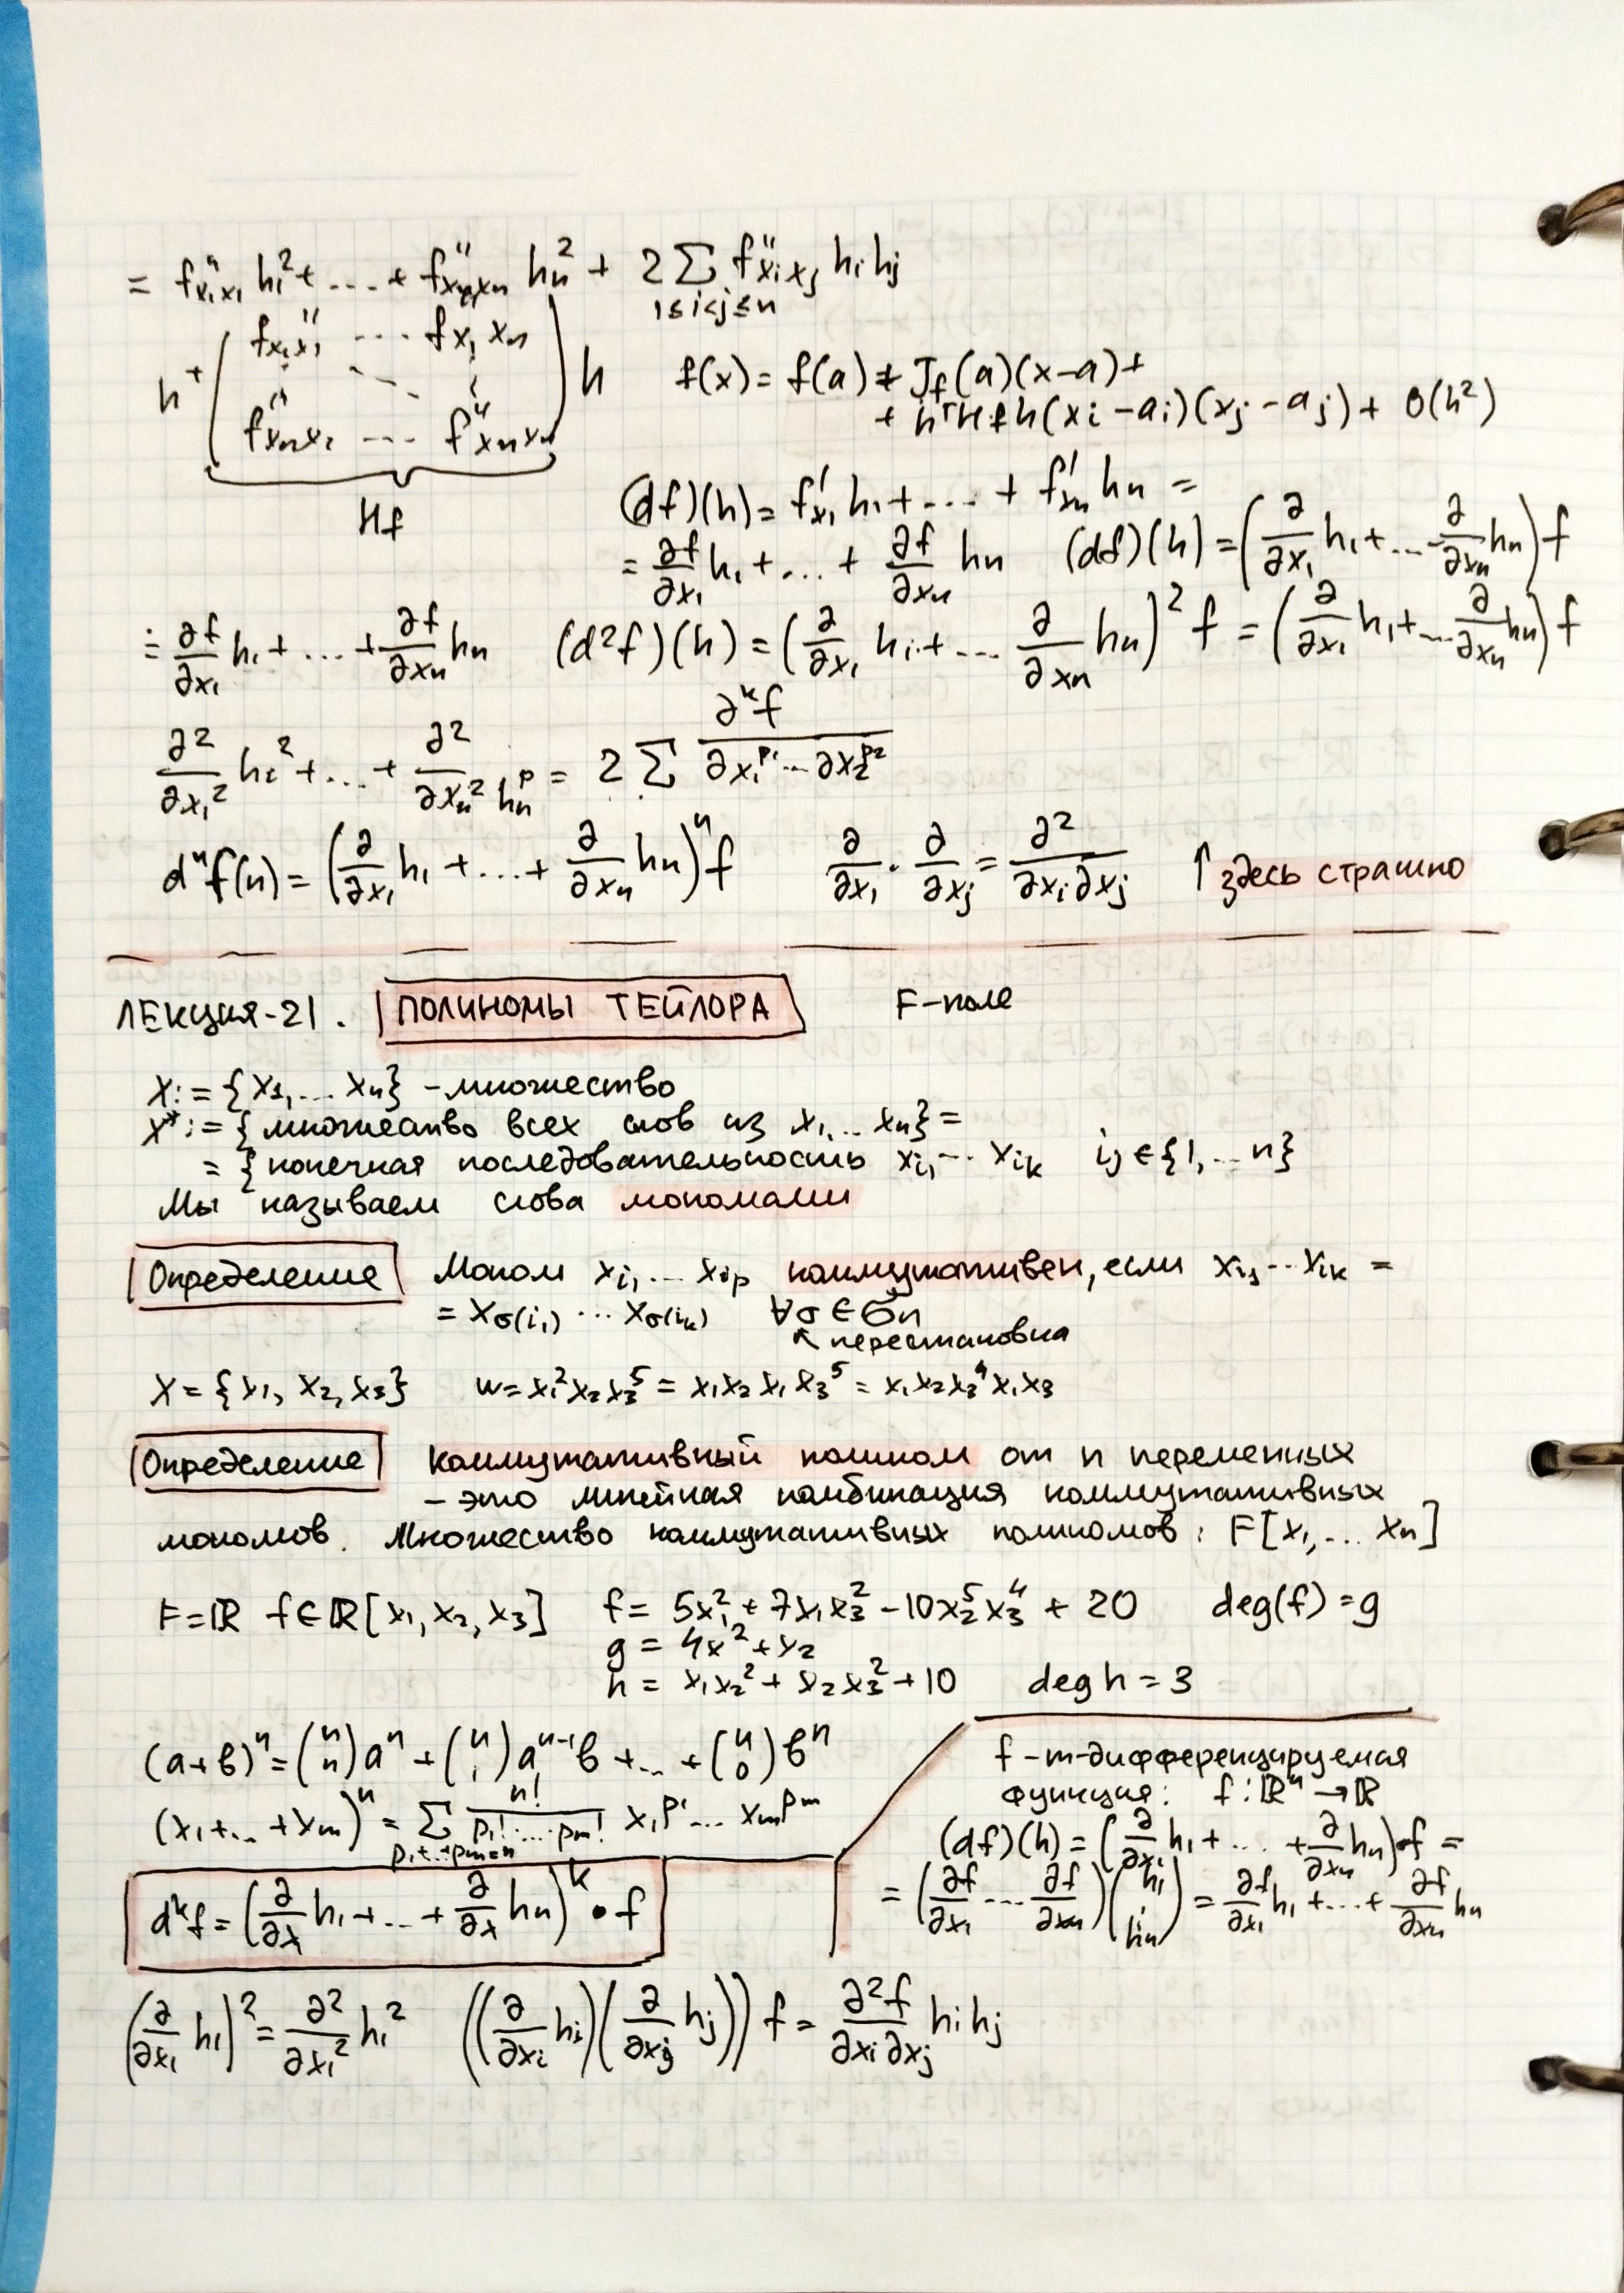 = f''x₁x₁ h₁² + ... + f''xₙxₙ hₙ² + 2 Σ f''xᵢxⱼ hᵢhⱼ
1≤i<j≤n
h⊤ ( f''x₁x₁ ... fx₁xₙ
f''xₙx₁ ... f''xₙxₙ ) h
Hf
f(x) = f(a) + Jf(a)(x-a) +
+ h⊤Hfh(xᵢ - aᵢ)(xⱼ - aⱼ) + O(h²)
(df)(h) = f'x₁ h₁ + ... + f'xₙ hₙ =
= ∂f/∂x₁ h₁ + ... + ∂f/∂xₙ hₙ (df)(h) = (∂/∂x₁ h₁ + ... ∂/∂xₙ hₙ) f
= ∂f/∂x₁ h₁ + ... + ∂f/∂xₙ hₙ (d²f)(h) = (∂/∂x₁ h₁ + ... ∂/∂xₙ hₙ)² f = (∂/∂x₁ h₁ + ... ∂/∂xₙ hₙ) f
∂²/∂x₁² h₁² + ... + ∂²/∂xₙ² hₙᵖ = 2 Σ ∂ᵏf/∂x₁ᵖ¹ ... ∂x₂ᵖ²
dⁿf(h) = (∂/∂x₁ h₁ + ... + ∂/∂xₙ hₙ)ⁿ f ∂/∂xᵢ · ∂/∂xⱼ = ∂²/∂xᵢ∂xⱼ ↑ здесь страшно
ЛЕКЦИЯ-21. ПОЛИНОМЫ ТЕЙЛОРА F-поле
X := {x₁, ... xₙ} - множество
X* := { множество всех слов из x₁, ... xₙ} =
= { конечная последовательность xᵢ₁ ... xᵢₖ iⱼ ∈ {1, ... n}
Мы называем слова мономами
Определение Моном xᵢ₁ ... xᵢₚ коммутативен, если xᵢ₁ ... xᵢₖ =
= xσ(i₁) ... xσ(iₖ) ∀σ ∈ Sₙ
↖ перестановка
X = {x₁, x₂, x₃} w = x₁²x₂x₃⁵ = x₁x₂x₁x₃⁵ = x₁x₂x₃⁴x₁x₃
Определение Коммутативный полином от n переменных
- это линейная комбинация коммутативных
мономов. Множество коммутативных полиномов: F[x₁, ... xₙ]
F = ℝ f ∈ ℝ[x₁, x₂, x₃] f = 5x₁² + 7x₁x₃² - 10x₂⁵x₃⁴ + 20 deg(f) = 9
g = 4x² + x₂
h = x₁x₂² + x₂x₃² + 10 deg h = 3
(a+b)ⁿ = (n n)aⁿ + (n 1)aⁿ⁻¹b + ... + (n 0)bⁿ
(x₁ + ... + xₘ)ⁿ = Σ n!/p₁! ... pₘ! x₁ᵖ¹ ... xₘᵖᵐ
p₁+...+pₘ=n
dᵏf = (∂/∂x h₁ + ... + ∂/∂x hₙ)ᵏ • f
f - m-дифференцируемая
функция: f: ℝⁿ → ℝ
(df)(h) = (∂/∂x₁ h₁ + ... + ∂/∂xₙ hₙ)•f =
= (∂f/∂x₁ ... ∂f/∂xₙ)(h₁ ⋮ hₙ) = ∂f/∂x₁ h₁ + ... + ∂f/∂xₙ hₙ
(∂/∂x₁ h₁)² = ∂²/∂x₁² h₁² ((∂/∂xᵢ hᵢ)(∂/∂xⱼ hⱼ)) f = ∂²f/∂xᵢ∂xⱼ hᵢhⱼ